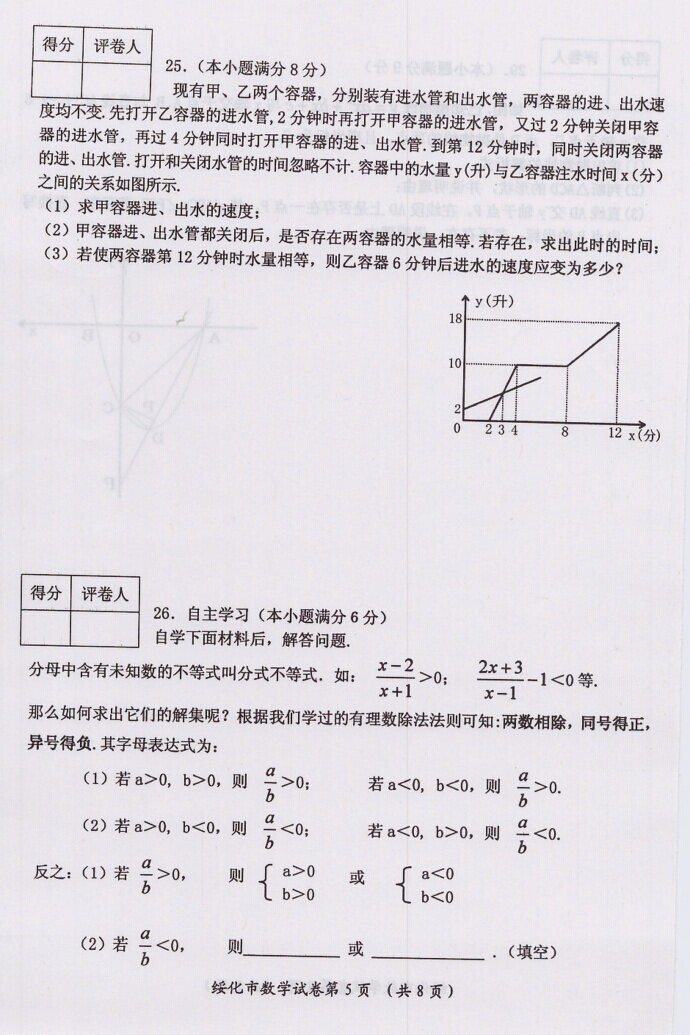 得分 评卷人
25.（本小题满分8分）
现有甲、乙两个容器，分别装有进水管和出水管，两容器的进、出水速
度均不变.先打开乙容器的进水管,2分钟时再打开甲容器的进水管，又过2分钟关闭甲容
器的进水管，再过4分钟同时打开甲容器的进、出水管.到第12分钟时，同时关闭两容器
的进、出水管.打开和关闭水管的时间忽略不计.容器中的水量y(升)与乙容器注水时间x(分)
之间的关系如图所示.
（1）求甲容器进、出水的速度；
（2）甲容器进、出水管都关闭后，是否存在两容器的水量相等.若存在，求出此时的时间；
（3）若使两容器第12分钟时水量相等，则乙容器6分钟后进水的速度应变为多少？
y(升)
18
10
2
0 2 3 4 8 12 x(分)
得分 评卷人
26. 自主学习（本小题满分6分）
自学下面材料后，解答问题.
分母中含有未知数的不等式叫分式不等式. 如： (x−2)/(x+1)＞0； (2x+3)/(x−1)−1＜0等.
那么如何求出它们的解集呢？根据我们学过的有理数除法法则可知:两数相除，同号得正，
异号得负.其字母表达式为：
（1）若a＞0，b＞0，则 a/b＞0； 若a＜0，b＜0，则 a/b＞0.
（2）若a＞0，b＜0，则 a/b＜0； 若a＜0，b＞0，则 a/b＜0.
反之：（1）若 a/b＞0， 则 { a＞0 b＞0 或 { a＜0 b＜0
（2）若 a/b＜0， 则__________ 或 ____________ .（填空）
绥化市数学试卷第5页 （共8页）